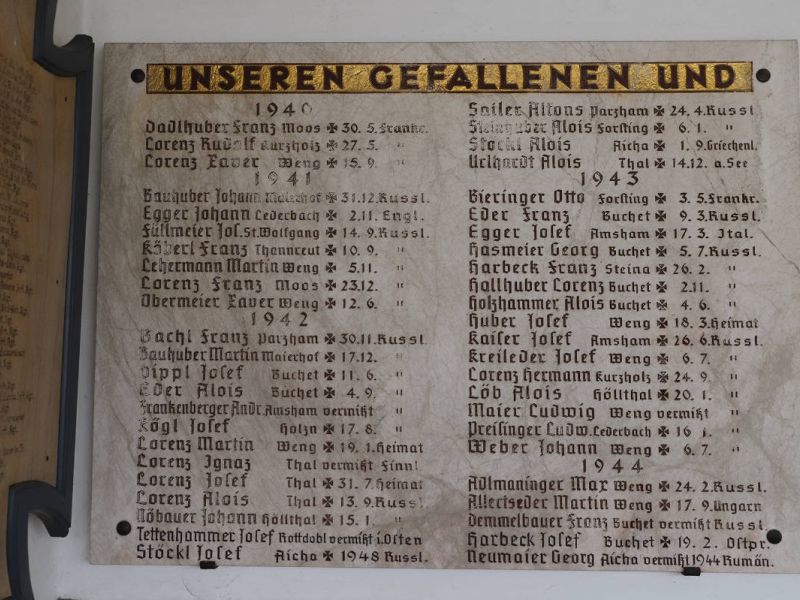 UNSEREN GEFALLENEN UND
1940
Dadlhuber Franz Moos ✠ 30. 5. Frankr.
Lorenz Rudolf Kurzholz ✠ 27. 5. "
Lorenz Xaver Weng ✠ 15. 9. "
1941
Bauhuber Johann Maierhof ✠ 31.12. Russl.
Egger Johann Lederbach ✠ 2.11. Engl.
Füllmeier Jos. St. Wolfgang ✠ 14. 9. Russl.
Köberl Franz Thannreut ✠ 10. 9. "
Lehermann Martin Weng ✠ 5.11. "
Lorenz Franz Moos ✠ 23.12. "
Obermeier Xaver Weng ✠ 12. 6. "
1942
Bachl Franz Parzham ✠ 30.11. Russl.
Bauhuber Martin Maierhof ✠ 17.12. "
Dippl Josef Buchet ✠ 11. 6. "
Eder Alois Buchet ✠ 4. 9. "
Frankenberger Andr. Amsham vermißt "
Kögl Josef Holzn ✠ 17. 8. "
Lorenz Martin Weng ✠ 19. 1. Heimat
Lorenz Ignaz Thal vermißt Finnl
Lorenz Josef Thal ✠ 31. 7. Heimat
Lorenz Alois Thal ✠ 13. 9. Russl
Nöbauer Johann Höllthal ✠ 15. 1. "
Tettenhammer Josef Rottdobl vermißt i. Osten
Stöckl Josef Aicha ✠ 1948 Russl.
Sailer Alfons Parzham ✠ 24. 4. Russl.
Steinhuber Alois Forsting ✠ 6. 1. "
Stöckl Alois Aicha ✠ 1. 9. Griechenl.
Urlhardt Alois Thal ✠ 14.12. a. See
1943
Bieringer Otto Forsting ✠ 3. 5. Frankr.
Eder Franz Buchet ✠ 9. 3. Russl.
Egger Josef Amsham ✠ 17. 3. Ital.
Hasmeier Georg Buchet ✠ 5. 7. Russl.
Harbeck Franz Steina ✠ 26. 2. "
Hallhuber Lorenz Buchet ✠ 2.11. "
Holzhammer Alois Buchet ✠ 4. 6. "
Huber Josef Weng ✠ 18. 3. Heimat
Kaiser Josef Amsham ✠ 26. 6. Russl.
Kreileder Josef Weng ✠ 6. 7. "
Lorenz Hermann Kurzholz ✠ 24. 9. "
Löb Alois Höllthal ✠ 20. 1. "
Maier Ludwig Weng vermißt "
Preisinger Ludw. Lederbach ✠ 16 1. "
Weber Johann Weng ✠ 6. 7. "
1944
Adlmaninger Max Weng ✠ 24. 2. Russl.
Allertseder Martin Weng ✠ 17. 9. Ungarn
Demmelbauer Franz Buchet vermißt Russl.
Harbeck Josef Buchet ✠ 19. 2. Ostpr.
Neumaier Georg Aicha vermißt 1944 Rumän.